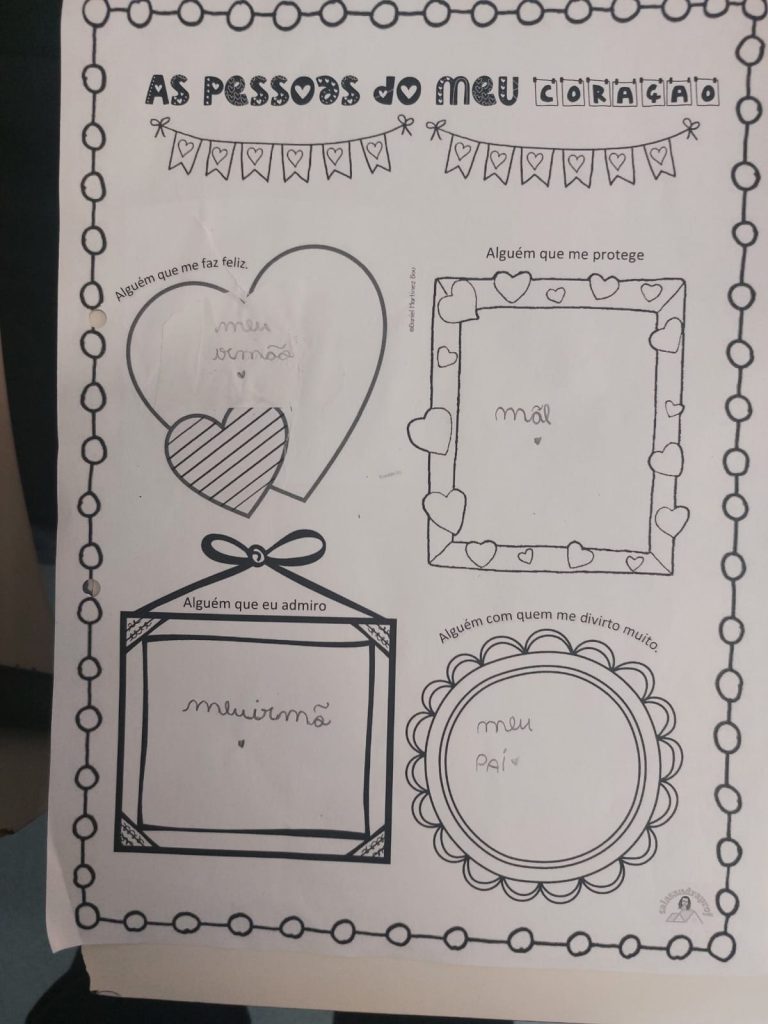 AS PESSOAS DO MEU CORAÇAO
Alguém que me faz feliz.
meu
irmão
Alguém que me protege
©Daniel Martinez Bou
mãe
Alguém que eu admiro
meuirmã
Alguém com quem me divirto muito.
meu
PAÍ